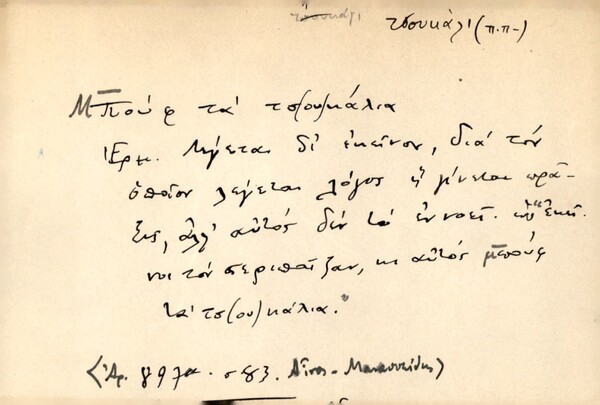 τσουκάλι
τσουκάλι (π.π-)
Μπούφ τα τσ(ου)κάλια
Ἑρμ. Λέγεται δι' ἐκεῖνον, διά τόν
ὁποῖον λέγεται λόγος ἤ γίνεται πρᾶ-
ξις, ἀλλ' αὐτός δέν τό ἐννοεῖ. "Ἐκεῖ-
νοι τόν περιπαῖζαν, κι αὐτός μπούφ
τα τσ(ου)κάλια."
Ἀρ. 897 σ 83. Αἶνος -